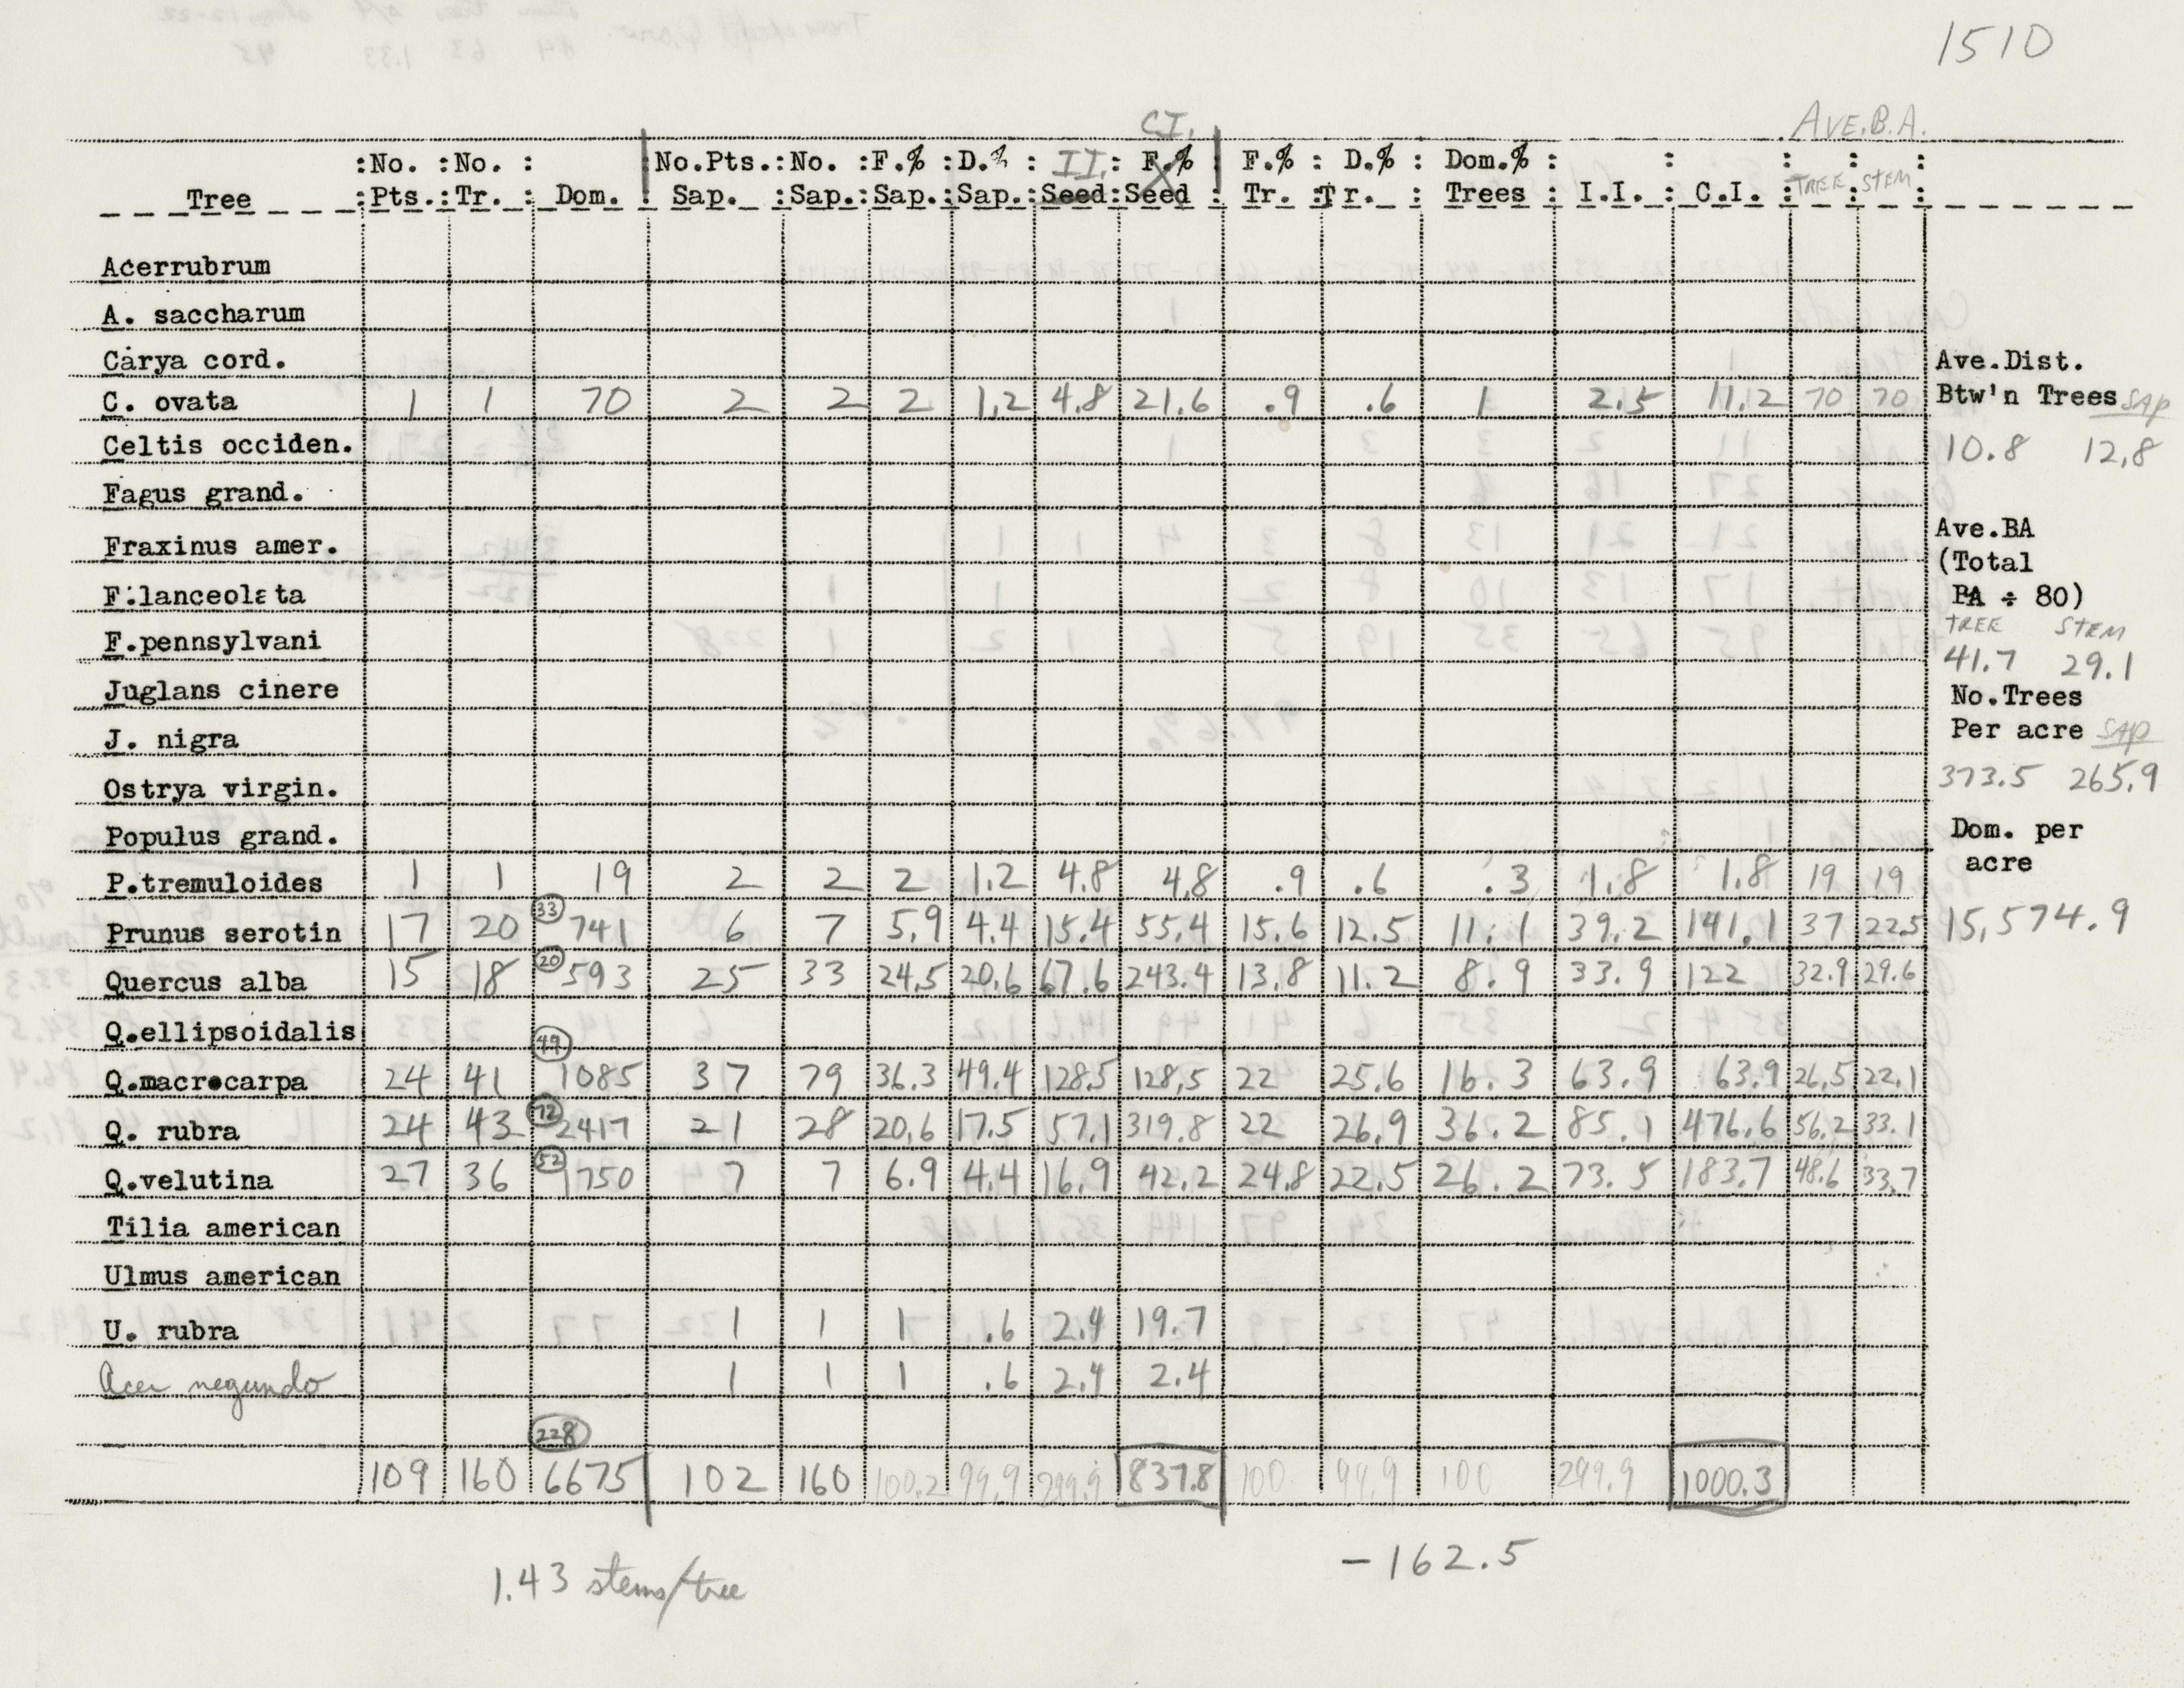 1510
AVE.B.A.
CI.
:No. :No. : No.Pts.:No. :F.% :D.% : II.: F.% F.% : D.% : Dom.% : : : : :
Tree :Pts.:Tr. : Dom. : Sap. :Sap.:Sap.:Sap.:Seed:Seed : Tr. :Tr. : Trees : I.I. : C.I. : TREE : STEM :
Acerrubrum
A. saccharum 1
Carya cord.
C. ovata 1 1 70 2 2 2 1.2 4.8 21.6 .9 .6 1 2.5 11.2 70 70
Celtis occiden.
Fagus grand.
Fraxinus amer.
F.lanceolata
F.pennsylvani
Juglans cinere
J. nigra
Ostrya virgin.
Populus grand.
P.tremuloides 1 1 19 2 2 2 1.2 4.8 4.8 .9 .6 .3 1.8 1.8 19 19
Prunus serotin 17 20 33 741 6 7 5.9 4.4 15.4 55.4 15.6 12.5 11.1 39.2 141.1 37 22.5
Quercus alba 15 18 20 593 25 33 24.5 20.6 67.6 243.4 13.8 11.2 8.9 33.9 122 32.9 29.6
Q.ellipsoidalis
Q.macrocarpa 24 41 49 1085 37 79 36.3 49.4 128.5 128.5 22 25.6 16.3 63.9 63.9 26.5 22.1
Q. rubra 24 43 72 2417 21 28 20.6 17.5 57.1 319.8 22 26.9 36.2 85.1 476.6 56.2 33.1
Q.velutina 27 36 52 1750 7 7 6.9 4.4 16.9 42.2 24.8 22.5 26.2 73.5 183.7 48.6 33.7
Tilia american
Ulmus american
U. rubra 1 1 1 .6 2.4 19.7
Acer negundo 1 1 1 .6 2.4 2.4
228
109 160 6675 102 160 100.2 99.9 299.9 837.8 100 99.9 100 299.9 1000.3
1.43 stems/tree
-162.5
Ave.Dist.
Btw'n Trees SAP
10.8 12.8
Ave.BA
(Total
BA ÷ 80)
TREE STEM
41.7 29.1
No.Trees
Per acre SAP
373.5 265.9
Dom. per
acre
15,574.9